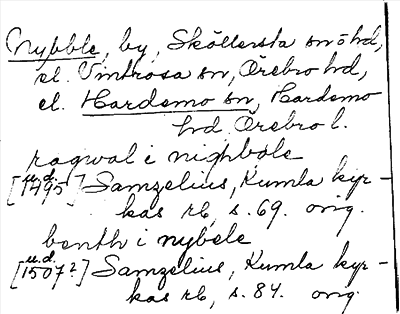 Nybble, by, Sköllersta sn o hd,
el. Vintrosa sn, Örebro hd,
el. Hardemo sn, Hardemo
hd Örebro l.
ragwal i nighbole
[u.d. 1495] Samzelius, Kumla kyr-
kas rb, s. 69. orig.
benth i nybele
[u.d. 1507?] Samzelius, Kumla kyr-
kas rb, s. 84. orig.